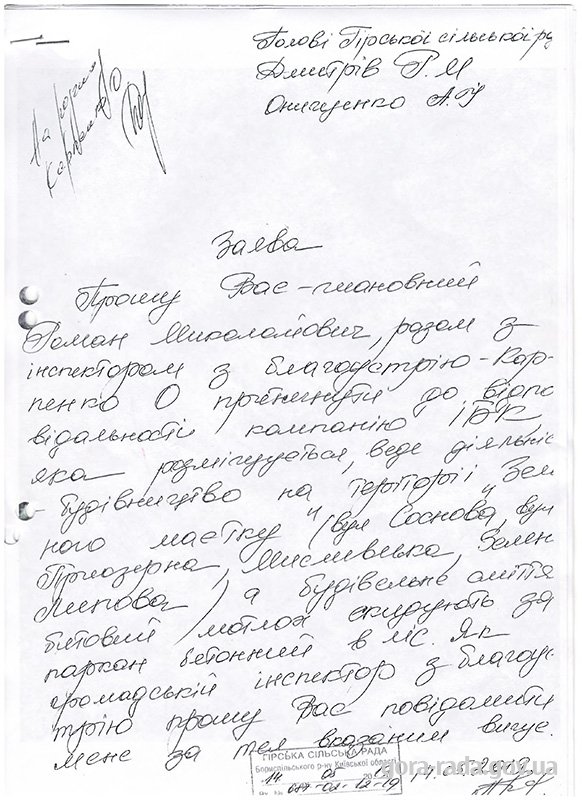 Голові Гірської сільської ра
Дмитрів Р. М
Онищенко А.
На розгляд
Карпенко О
Заява
Прошу Вас - шановний
Роман Миколайович, разом з
інспектором з благоустрію - Кар-
пенко О притягнути до відпо
відальності компанію ІБК,
яка розміщується, веде діяльніс
- будівництво на території "Зем
ного маєтку" (вул Соснова, вул
Приозерна, Мисливська, Зелен
Липова) а будівельне сміття
битовий мотлох скидують за
паркан бетонний в ліс. Як
громадській інспектор з благоус
трію прошу Вас повідомити
мене за тел вказаним вище.
ГІРСЬКА СІЛЬСЬКА РАДА
Бориспільського р-ну Київської області
14 05 20
gora-rada.gov.ua